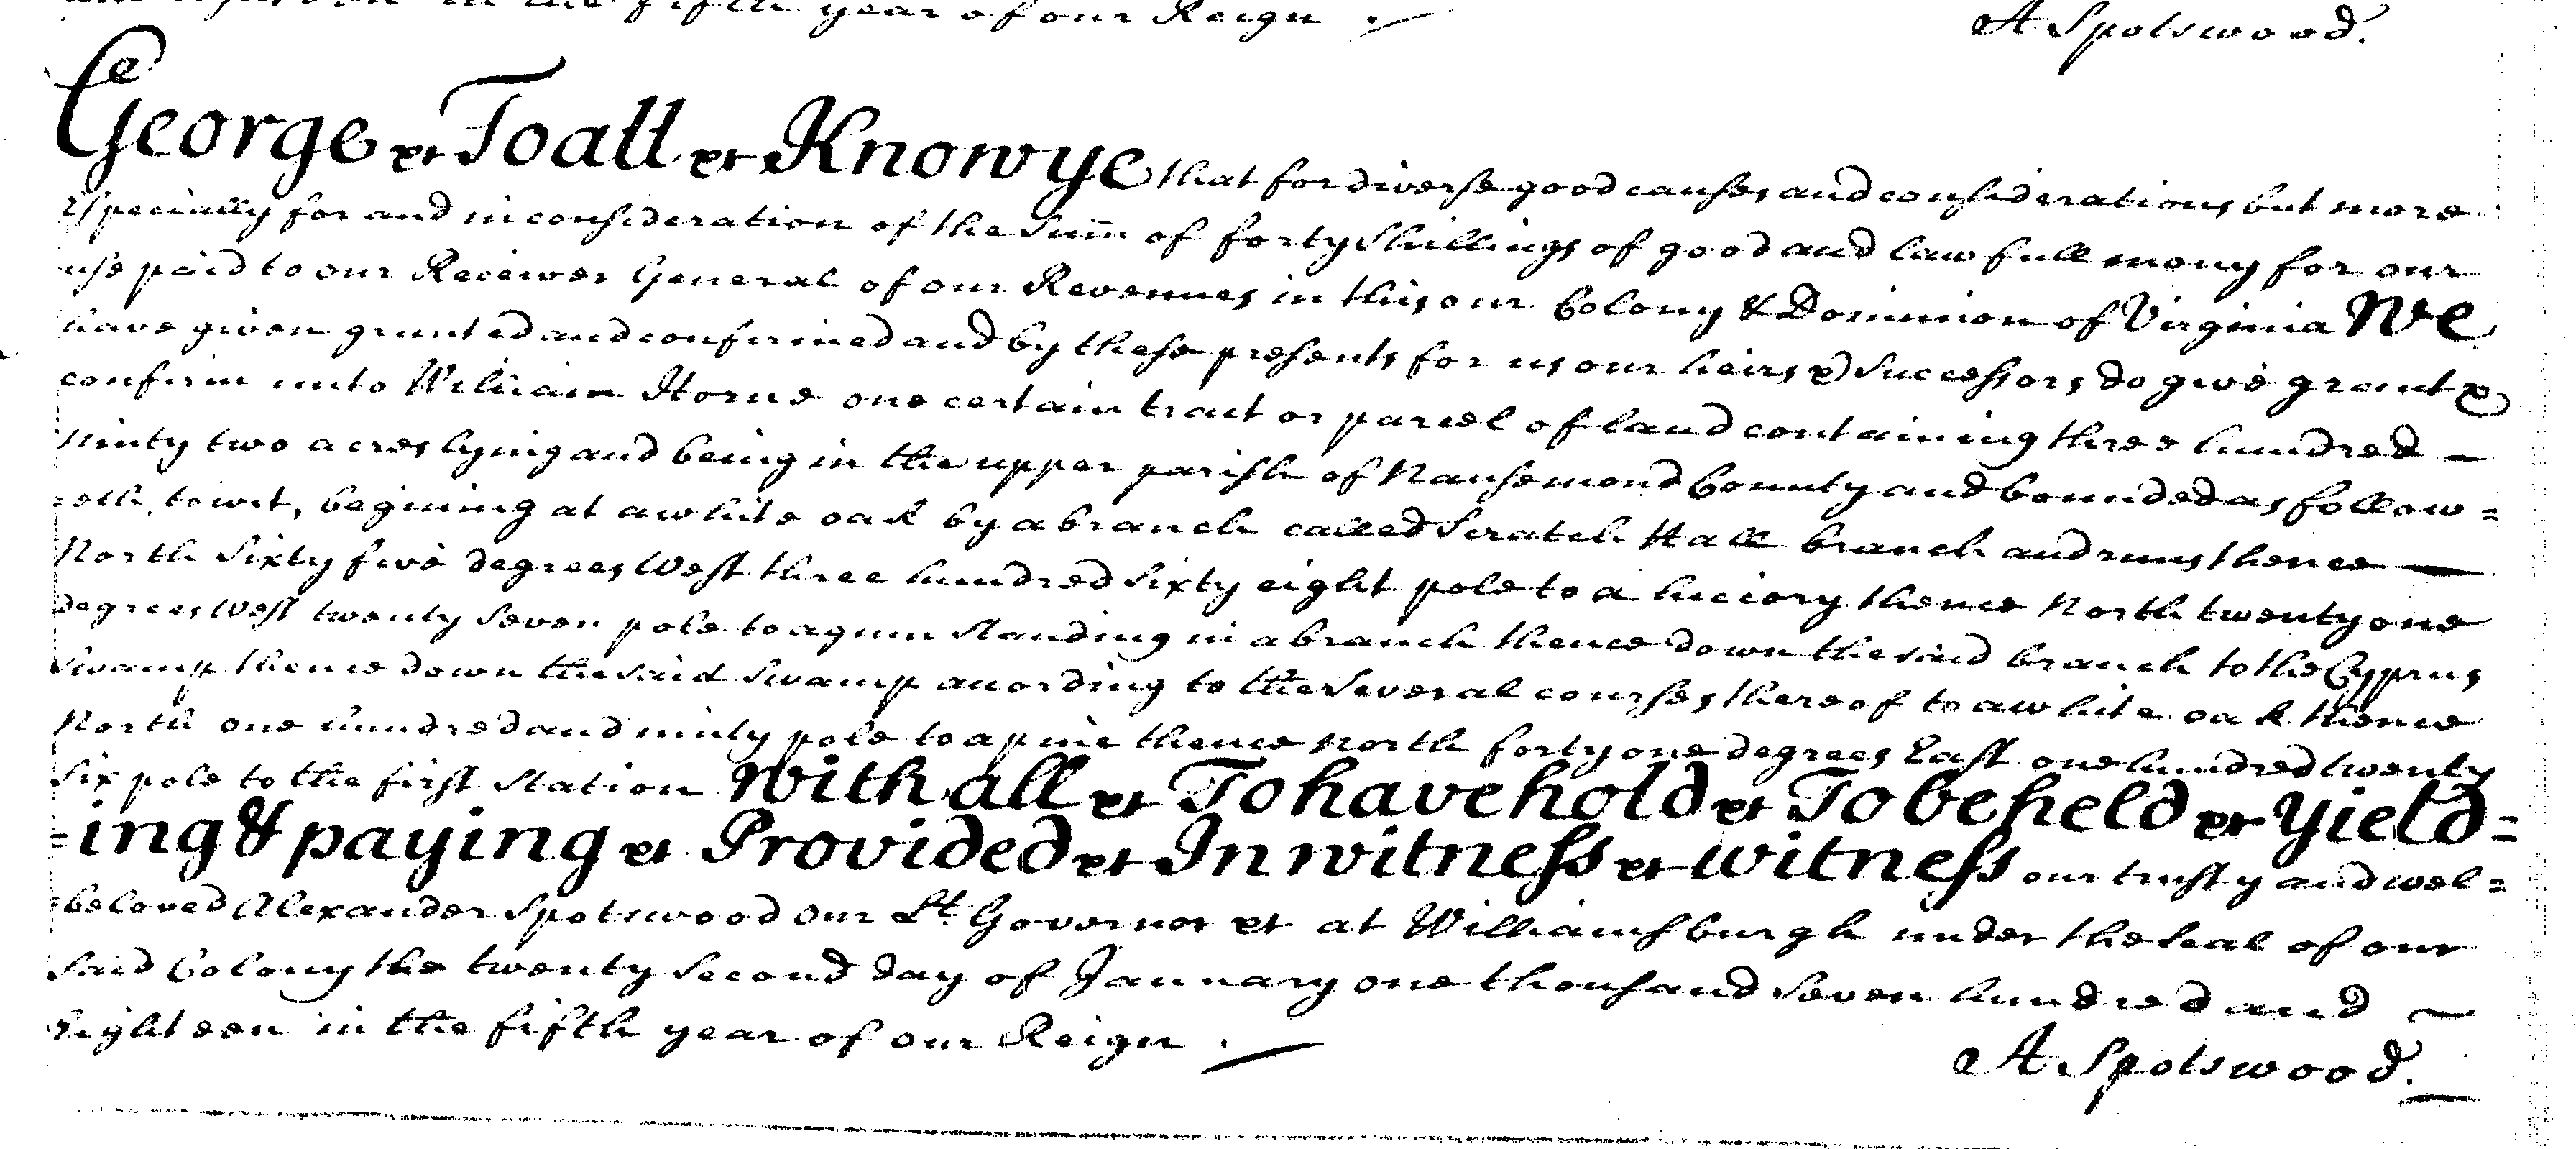 in the fifth year of our Reign
A Spotswood.
George &c To all &c Know ye that for diverse good causes and considerations but more
Especially for and in consideration of the Sum̅ of forty Shillings of good and lawfull mony for our
use paid to our Receiver General of our Revenues in this our Colony & Dominion of Virginia We
have given granted and confirmed and by these presents for us our heirs & Successors do give grant &
confirm unto William Horne one certain tract or parcel of land containing three hundred —
ninty two acres lying and being in the upper parish of Nansemond County and bounded as follow=
=eth, to wit, begining at a white oak by a branch called Scratch Hall branch and runs thence —
North Sixty five degrees West three hundred Sixty eight pole to a hiccory thence North twenty one
degrees West twenty Seven pole to a gum standing in a branch thence down the said branch to the Cyprus
Swamp thence down the said Swamp acording to the Several courses thereof to a white oak thence
North one hundred and ninty pole to a pine thence North forty one degrees East one hundred twenty
Six pole to the first Station With all &c To have hold &c To be held &c Yield=
=ing & paying &c Provided &c In witness &c witness our trusty and wel=
=beloved Alexander Spotswood our Lt. Governor &c at Williamsburgh under the Seal of our
Said Colony the twenty Second day of January one thousand Seven hundred and —
Eighteen in the fifth year of our Reign.
A Spotswood.